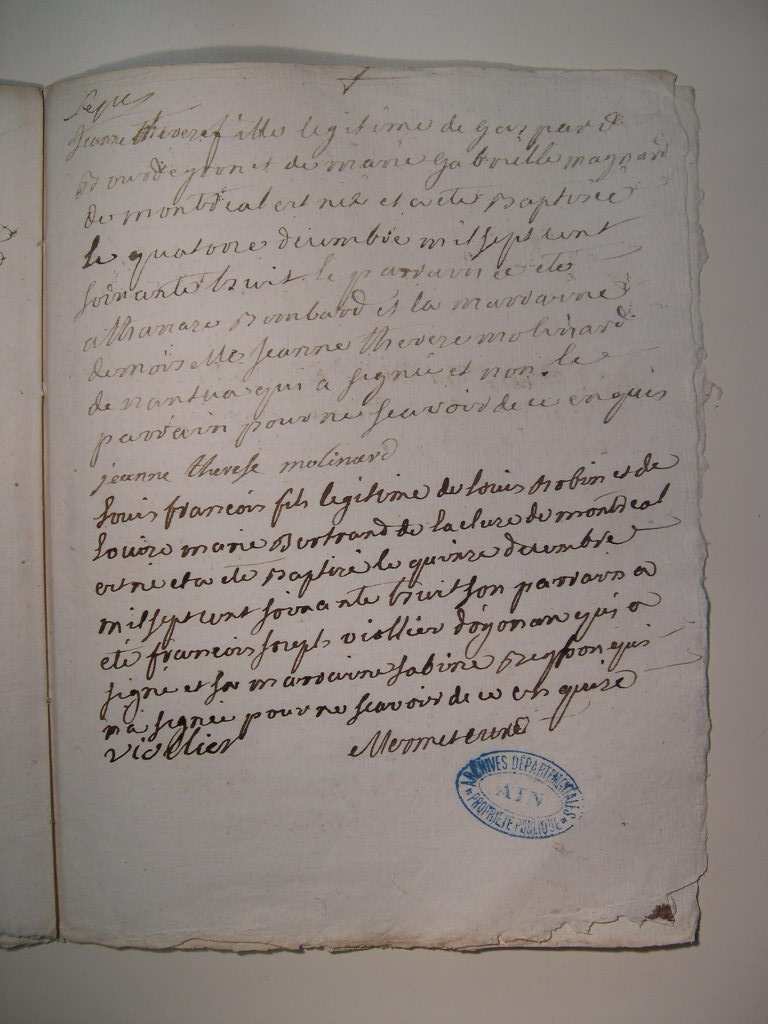 Jeanne therese fille legitime de gaspard
Bourdeyron et de marie gabrielle magnard
de montreal est nee et a ete Baptisée
le quatorze decembre mil sept cent
soixante huit. le parrain a ete
athanaze Bombard et la marraine
demoiselle Jeanne therese molinard
de nantua qui a signée et non le
parrain pour ne scavoir de ce enquis
jeanne therese molinard
Louis francois fils legitime de Louis Robin et de
Louise marie Bertrand de la cluse de montreal
est né et a été Baptisé le quinze decembre
mil sept cent soixante huit son parrain a
eté francois joseph viollier d'oyonan qui a
signe et sa marraine sabine qui
n'a signée pour ne scavoir de ce enquise
viollier Mermet curé
ARCHIVES DÉPARTEMENTALES
AIN
PROPRIÉTÉ PUBLIQUE